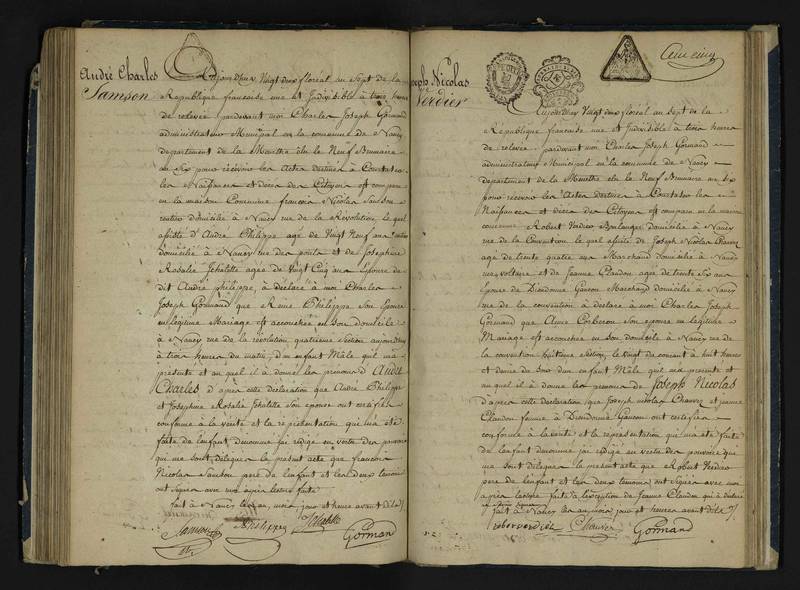 André Charles
Samson
Cejourd'hui Vingt deux floréal an Sept de la
République française une et Indivisible à trois heures
de relevée pardevant moi Charles Joseph Gormand
administrateur Municipal en la commune de Nancy
département de la Meurthe élu le Neuf Brumaire
an Six pour recevoir les Actes destinés à Constater
les Naissances et décès des Citoyens est comparu
en la maison Commune françois Nicolas Samson
rentier domicilié à Nancy rue de la Révolution, le quel
assisté d'André Philippe agé de Vingt Neuf ans
domicilié à Nancy rue des ponts et de Josephine
Rosalie agée de Vingt Cinq ans Epouse du
dit André philippe, à déclaré à moi Charles
Joseph Gormand que Reine Philippe Son Epouse
en légitime Mariage est accouchée en son domicile
à Nancy rue de la révolution quatrieme Section aujourd'hui
à trois heures du matin, d'un enfant Mâle qu'il m'a
présenté et au quel il à donné les prénoms d'André
Charles d'après cette déclaration que André Philippe
et Josephine Rosalie Son epouse ont certifié
conforme à la vérité et la représentation qui m'a été
faite de l'enfant dénommé j'ai rédigé en vertu des pouvoirs
qui me sont délégués le présent acte que françois
Nicolas Samson pere de l'enfant et les deux temoins
ont Signés avec moi après lecture faite
fait à Nancy les an, mois jour et heure avant dits
Samson
Philippe
Gormand
Joseph Nicolas
Verdier
Cent cinq
Cejourd'huy Vingt deux floréal an sept de la
République française une et Indivisible à trois heures
de relevée pardevant moi Charles Joseph Gormand
administrateur Municipal en la commune de Nancy
département de la Meurthe élu le Neuf Brumaire an Six
pour recevoir les Actes destinés à Constater les
Naissances et décès des Citoyens est comparu en la maison
commune Robert Verdier Boulanger domicilié à Nancy
rue de la Convention le quel assisté de Joseph Nicolas
agé de trente quatre ans Marchand domicilié à Nancy
rue voltaire et de Jeanne Claudon agée de trente Six ans
épouse de Dieudonné Marchand domicilié à Nancy
rue de la convention à déclaré à moi Charles Joseph
Gormand que Anne Son epouse en légitime
Mariage est accouchée en son domicile à Nancy rue de
la convention huitieme Section, le vingt du courant à huit heures
et demie du soir d'un enfant Mâle qu'il m'a présenté et
au quel il à donné les prénoms de Joseph Nicolas
d'après cette déclaration que Joseph nicolas et jeanne
Claudon femme à Dieudonné ont certifié
conforme à la vérité et la représentation qui m'a été faite
de l'enfant dénommé j'ai rédigé en vertu des pouvoirs qui
me sont délégués le présent acte que Robert Verdier
pere de l'enfant et les deux temoins ont Signés avec moi
après lecture faite à l'exception de Jeanne Claudon qui à déclaré
fait à Nancy les an mois jour et heures avant dits
rober verdiez
Gormand